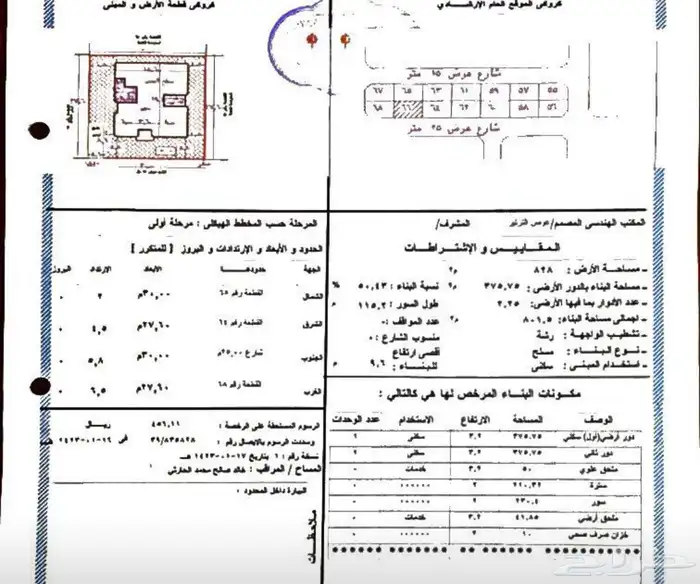 كروكي الموقع العام الإرشادي
شارع عرض ١٥ متر
٦٧ ٦٥ ٦٣ ٦١ ٥٩ ٥٧ ٥٥
٦٨ ٦٦ ٦٤ ٦٢ ٦٠ ٥٨ ٥٦
شارع عرض ٢٥ متر
كروكي قطعة الأرض و المبنى
المكتب الهندسي المصمم/ المشرف/
المقاييس و الإشتراطات
ـ مساحة الأرض : ٨٢٨ م٢
ـ مساحة البناء بالدور الأرضي: ٣٧٥,٧٥ م٢ نسبة البناء : ٥٠,٤٣ %
ـ عدد الأدوار بما فيها الأرضي: ٢,٢٥ طول السور : ١١٥,٢ م
ـ إجمالي مساحة البناء: ٨٠١,٥ م٢ عدد المواقف: ٠
ـ تشطيب الواجهة : رشة منسوب الشارع : ٠
ـ نوع البناء : مسلح أقصى ارتفاع
ـ استخدام المبنى : سكني للبناء : ٩,٦ م
مكونات البناء المرخص لها هي كالتالي :
الوصف المساحة الارتفاع الاستخدام عدد الوحدات
دور أرضي(أول) سكني ٣٧٥,٧٥ ٣,٢ سكني ١
دور ثاني ٣٧٥,٧٥ ٣,٢ سكني ١
ملحق علوي ٥٠ ٣,٢ خدمات ٠
سترة ٢١٠,٣٢ ٢ ٠٠٠٠٠٠ ٠
سور ٢٣٠,٤ ٢ ٠٠٠٠٠٠ ٠
ملحق أرضي ٤١,٨٥ ٣,٢ خدمات ٠
خزان صرف صحي ١٠ ٢ ٠٠٠٠٠٠ ٠
المرحلة حسب المخطط الهيكلي : مرحلة أولى
الحدود و الأبعاد و الإرتدادات و البروز [ للمتكرر ]
الجهة حدودها الأبعاد الارتداد البروز
الشمال القطعة رقم ٦٥ ٣٠,٠٠م ٢ ٠
الشرق القطعة رقم ٦٤ ٢٧,٦٠م ٤,٥ ٠
الجنوب شارع ٢٥,٠٠م ٣٠,٠٠م ٥,٨ ٠
الغرب القطعة رقم ٦٨ ٢٧,٦٠م ٦,٥ ٠
الرسوم المستحقة على الرخصة : ٤٥٦,١١ ريال
وسددت الرسوم بالإيصال رقم : ٣٩/٨٣٥٨٢٨ في ١٦-٠١-١٤٢٣ هـ
نسخة رقم : ١ بتاريخ ١٧-٠١-١٤٢٣ هـ
المساح / المراقب : خالد صالح محمد الحارثي
البيارة داخل الحدود :
ملاحظات
حراج